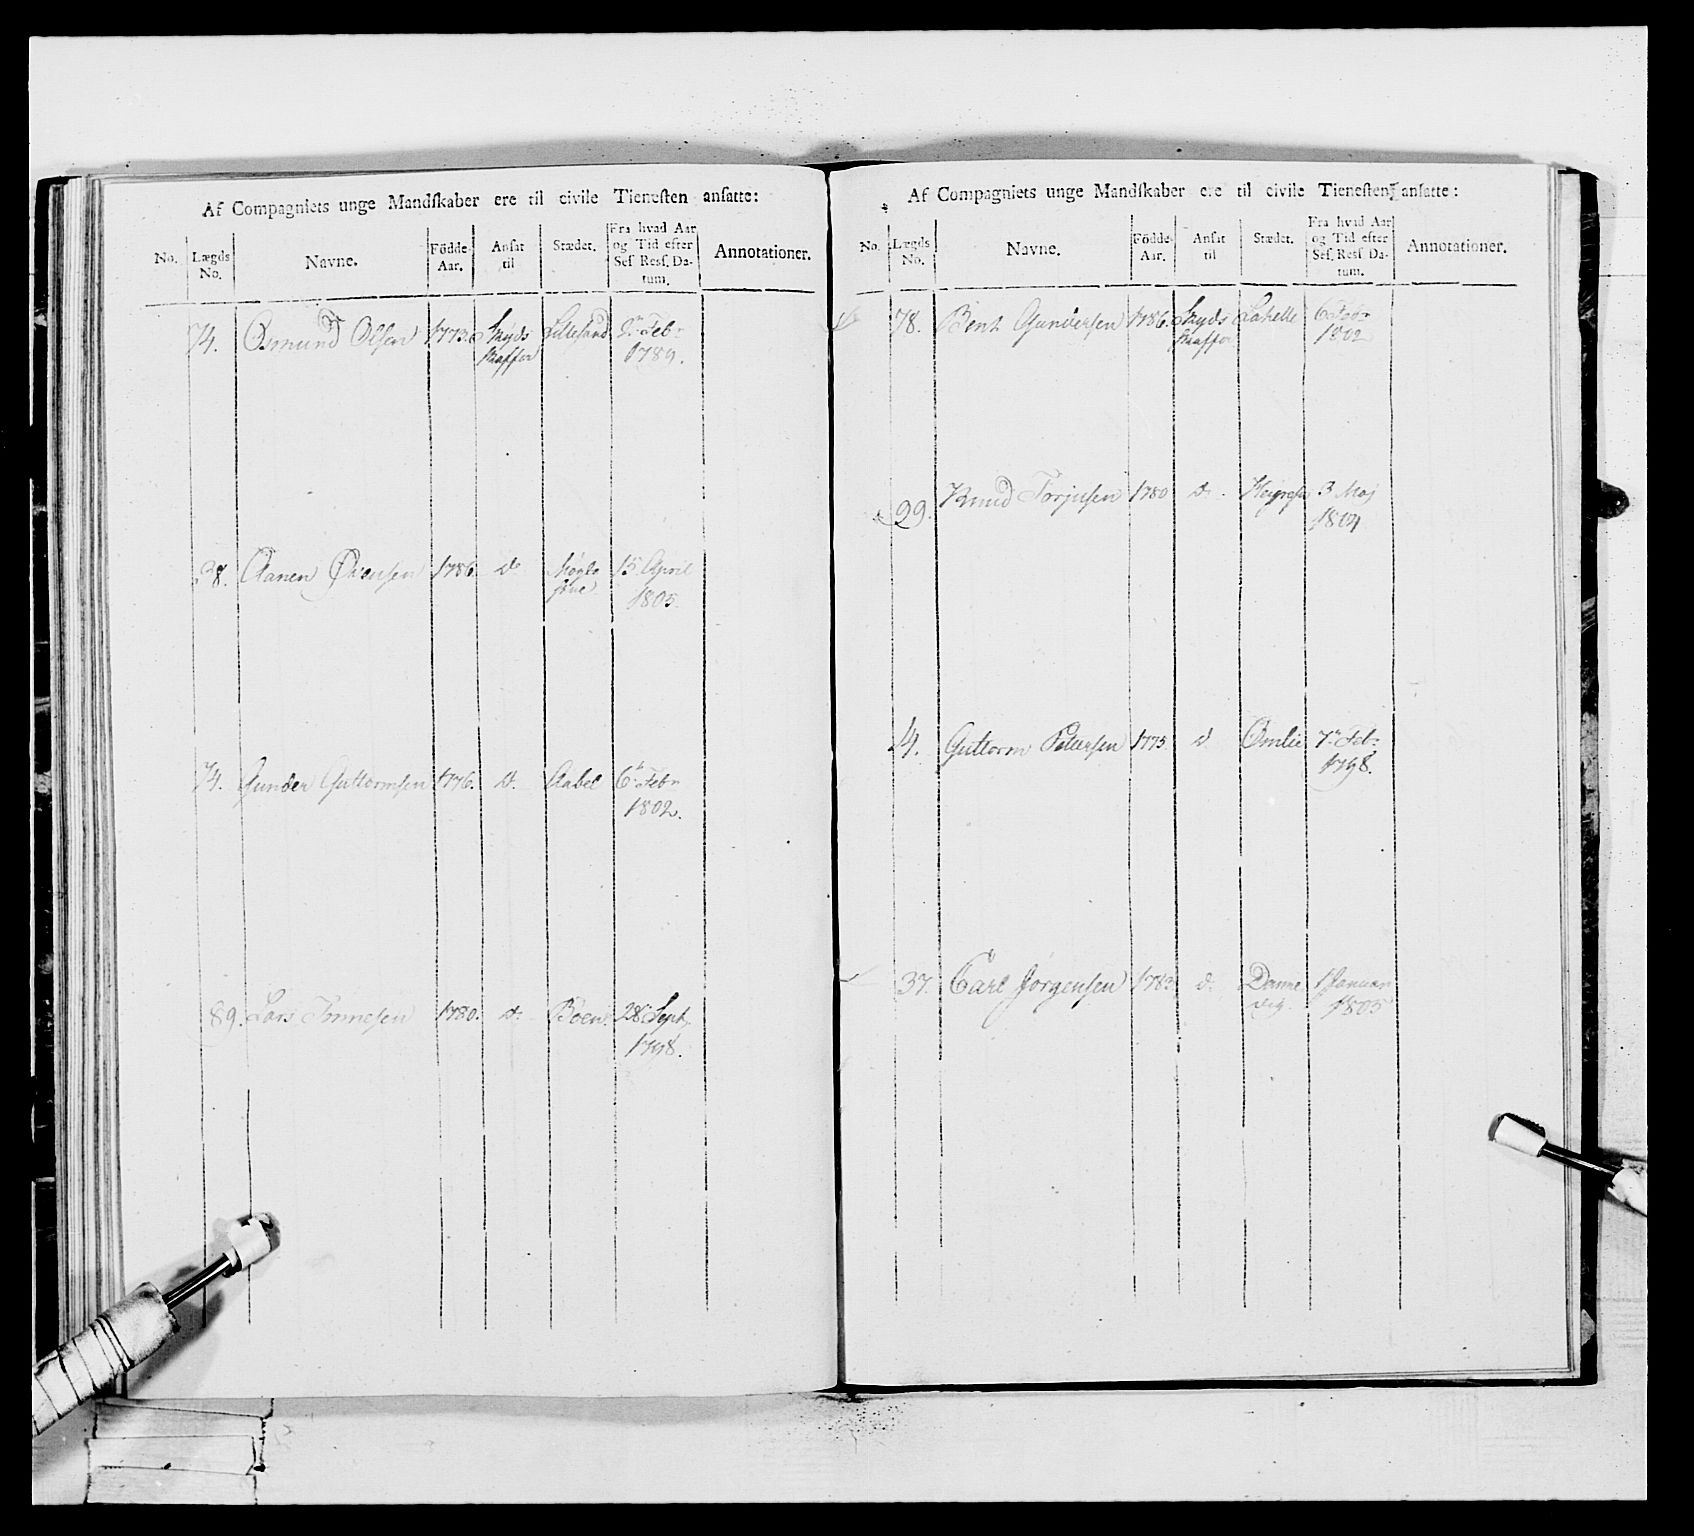 Af Compagniets unge Mandskaber ere til civile Tienesten ansatte:
No. Lægds No. Navne. Födde Aar. Ansat til Stædet. Fra hvad Aar og Tid efter Ses. Res. Datum. Annotationer.
74. Osmund Olsen 1773. Skyds Lillesand 2n Febr
skaffer 1789.
38. Aanen 1786. do 15 April
1805.
74. Gunder Guttormsen 1776. do. Aabel 6n Febr
1802.
89. Lars 1780. do. Boen 28 Sept.
1798.
Af Compagniets unge Mandskaber ere til civile Tienesten ansatte:
No. Lægds No. Navne. Födde Aar. Ansat til Stædet. Fra hvad Aar og Tid efter Ses. Res. Datum. Annotationer.
78. Bent Gundersen 1786. Skyds Lahelle 6 Febr
skaffer 1802
99. Knud Torjusen 1780 do. 3 Maj
1804
14. Guttorm Pettersen 1775 do Omlie 7n Feb.
1798.
37. Carl Jørgensen 1783 do. Danne 1 Januar
vig. 1805